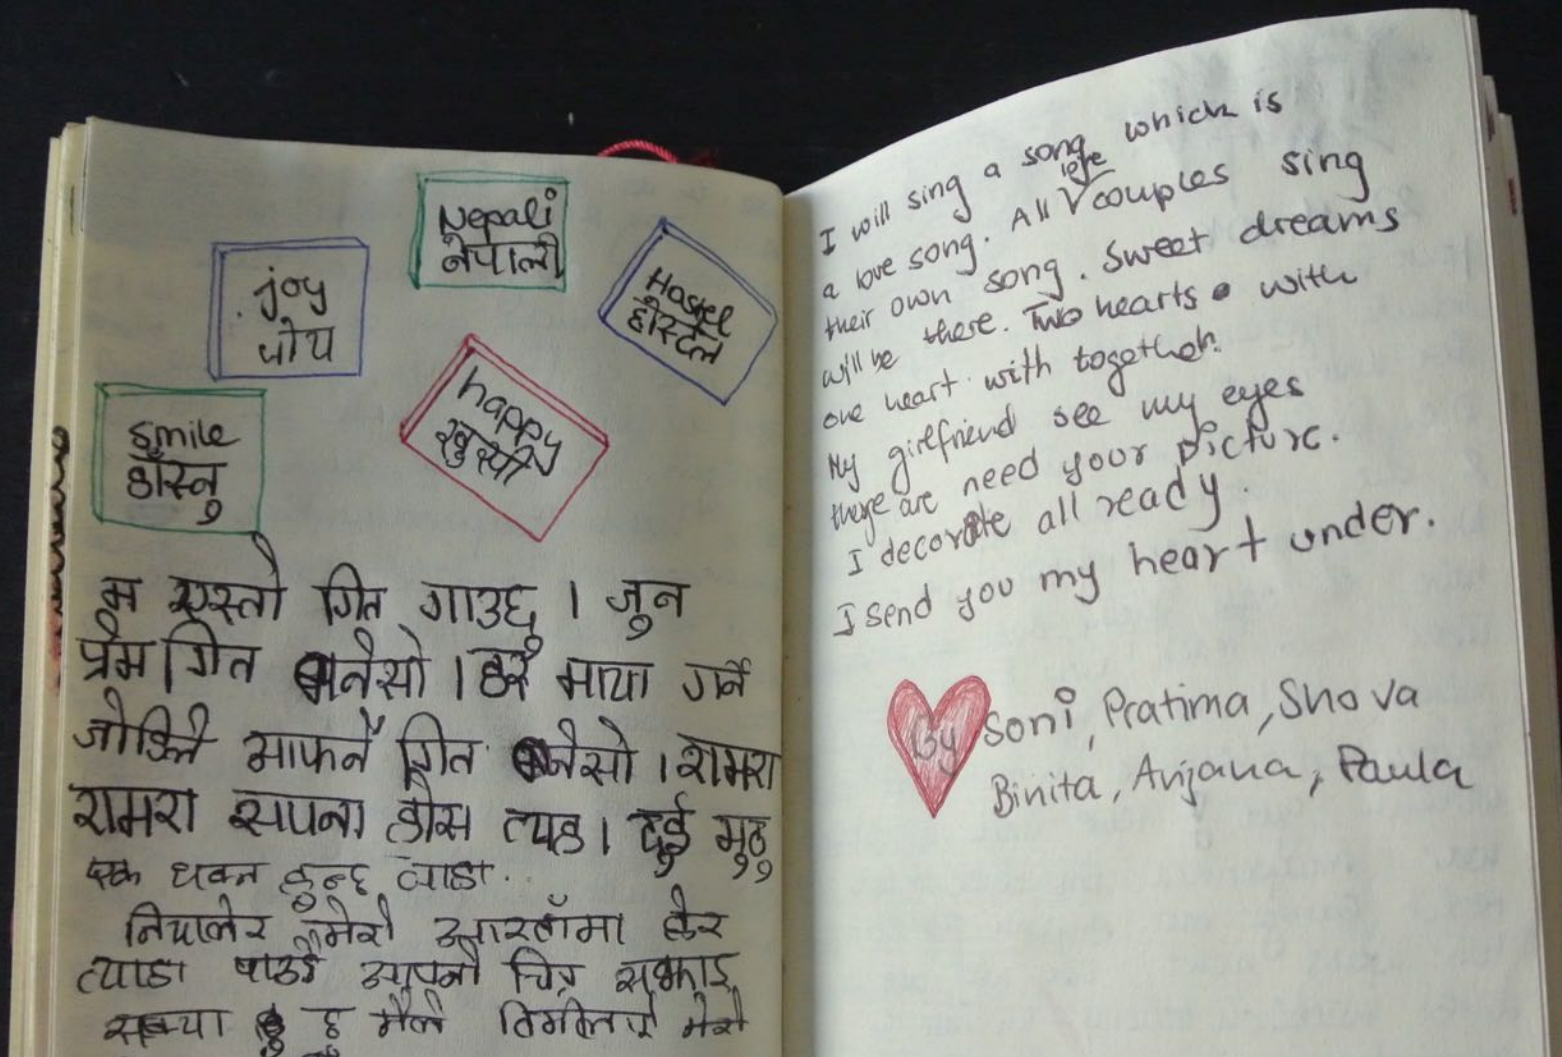 Nepali
नेपाली
joy
जोय
Hostel
होस्टेल
happy
खुस्यी
smile
हाँस्नु
म एस्तो गित गाउछु । जुन
प्रेम गित बनेसो । हरे माया गर्ने
जोडिले आफनै गित बनेसो । रामरा
रामरा सपना होस त्यहा । दुई मुटु
एक धक्न हुन्छ त्याहा
नियालेर मेरो आखाँमा हेर
त्याहा पाउछै आफ्नो चित्र
छु मैले तिमीलाई मेरो
I will sing a song which is
a love song. All love couples sing
their own song. Sweet dreams
will be there. Two hearts with
one heart with together.
My girlfriend see my eyes
there are need your picture.
I decorate all ready.
I send you my heart under.
By Soni, Pratima, Shova
Binita, Anjana, Paula